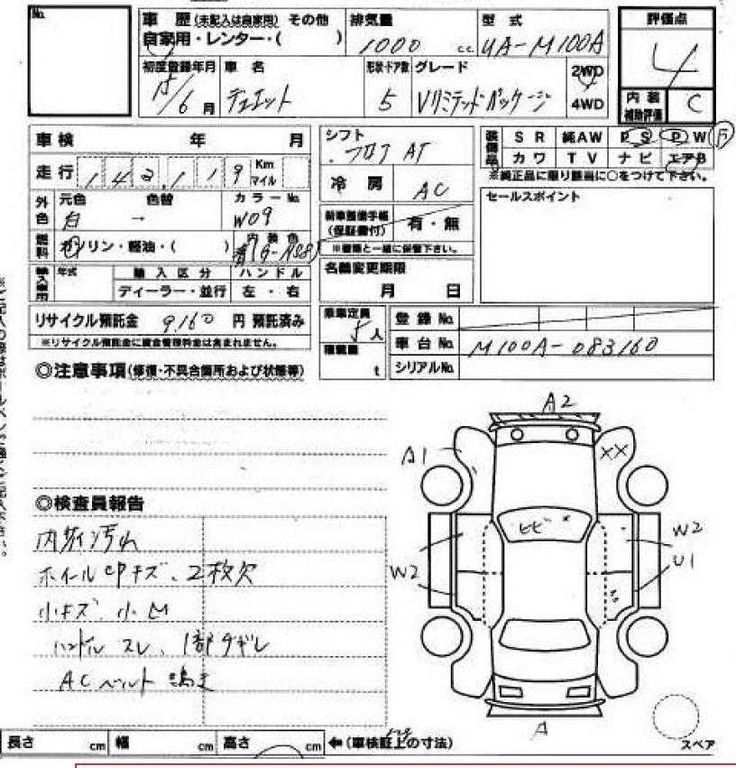 No.
車歴(未記入は自家用) その他
自家用・レンター・( )
排気量 1000 c c.
型式 UA-M100A
評価点 4
内装補助評価 C
初度登録年月 15/6月
車名 デュエット
形状・ドア数 5
グレード Vリミテッドパッケージ
2WD
4WD
車検 年 月
走行 142,119 Km マイル
外色 元色 白 色替 → カラーNo. W09
燃料 ガソリン・軽油・( ) 内装色
輸入車用 年式 輸入区分 ハンドル
ディーラー・並行 左・右
リサイクル預託金 9,160 円 預託済み
※リサイクル預託金に資金管理料金は含まれません。
シフト フロア AT
冷房 AC
新車整備手帳(保証書付) 有・無
※書類と一緒に保管下さい。
名義変更期限
月 日
乗車定員 5人
積載量 t
装備品 SR 純AW PS PW
カワ TV ナビ エアB
※純正品に限り該当に○をつけて下さい。
セールスポイント
登録No.
車台No. M100A-083160
シリアルNo.
◎注意事項(修復・不具合箇所および状態等)
◎検査員報告
内サイン汚れ
ホイールCPキズ、2枚欠
小キズ、小凹
ハンドル スレ、1部チギレ
ACベルト 鳴き
A2
A1
XX
ヒビ
X
W2
W2
U1
A
スペア
長さ cm 幅 cm 高さ cm ←(車検証上の寸法)